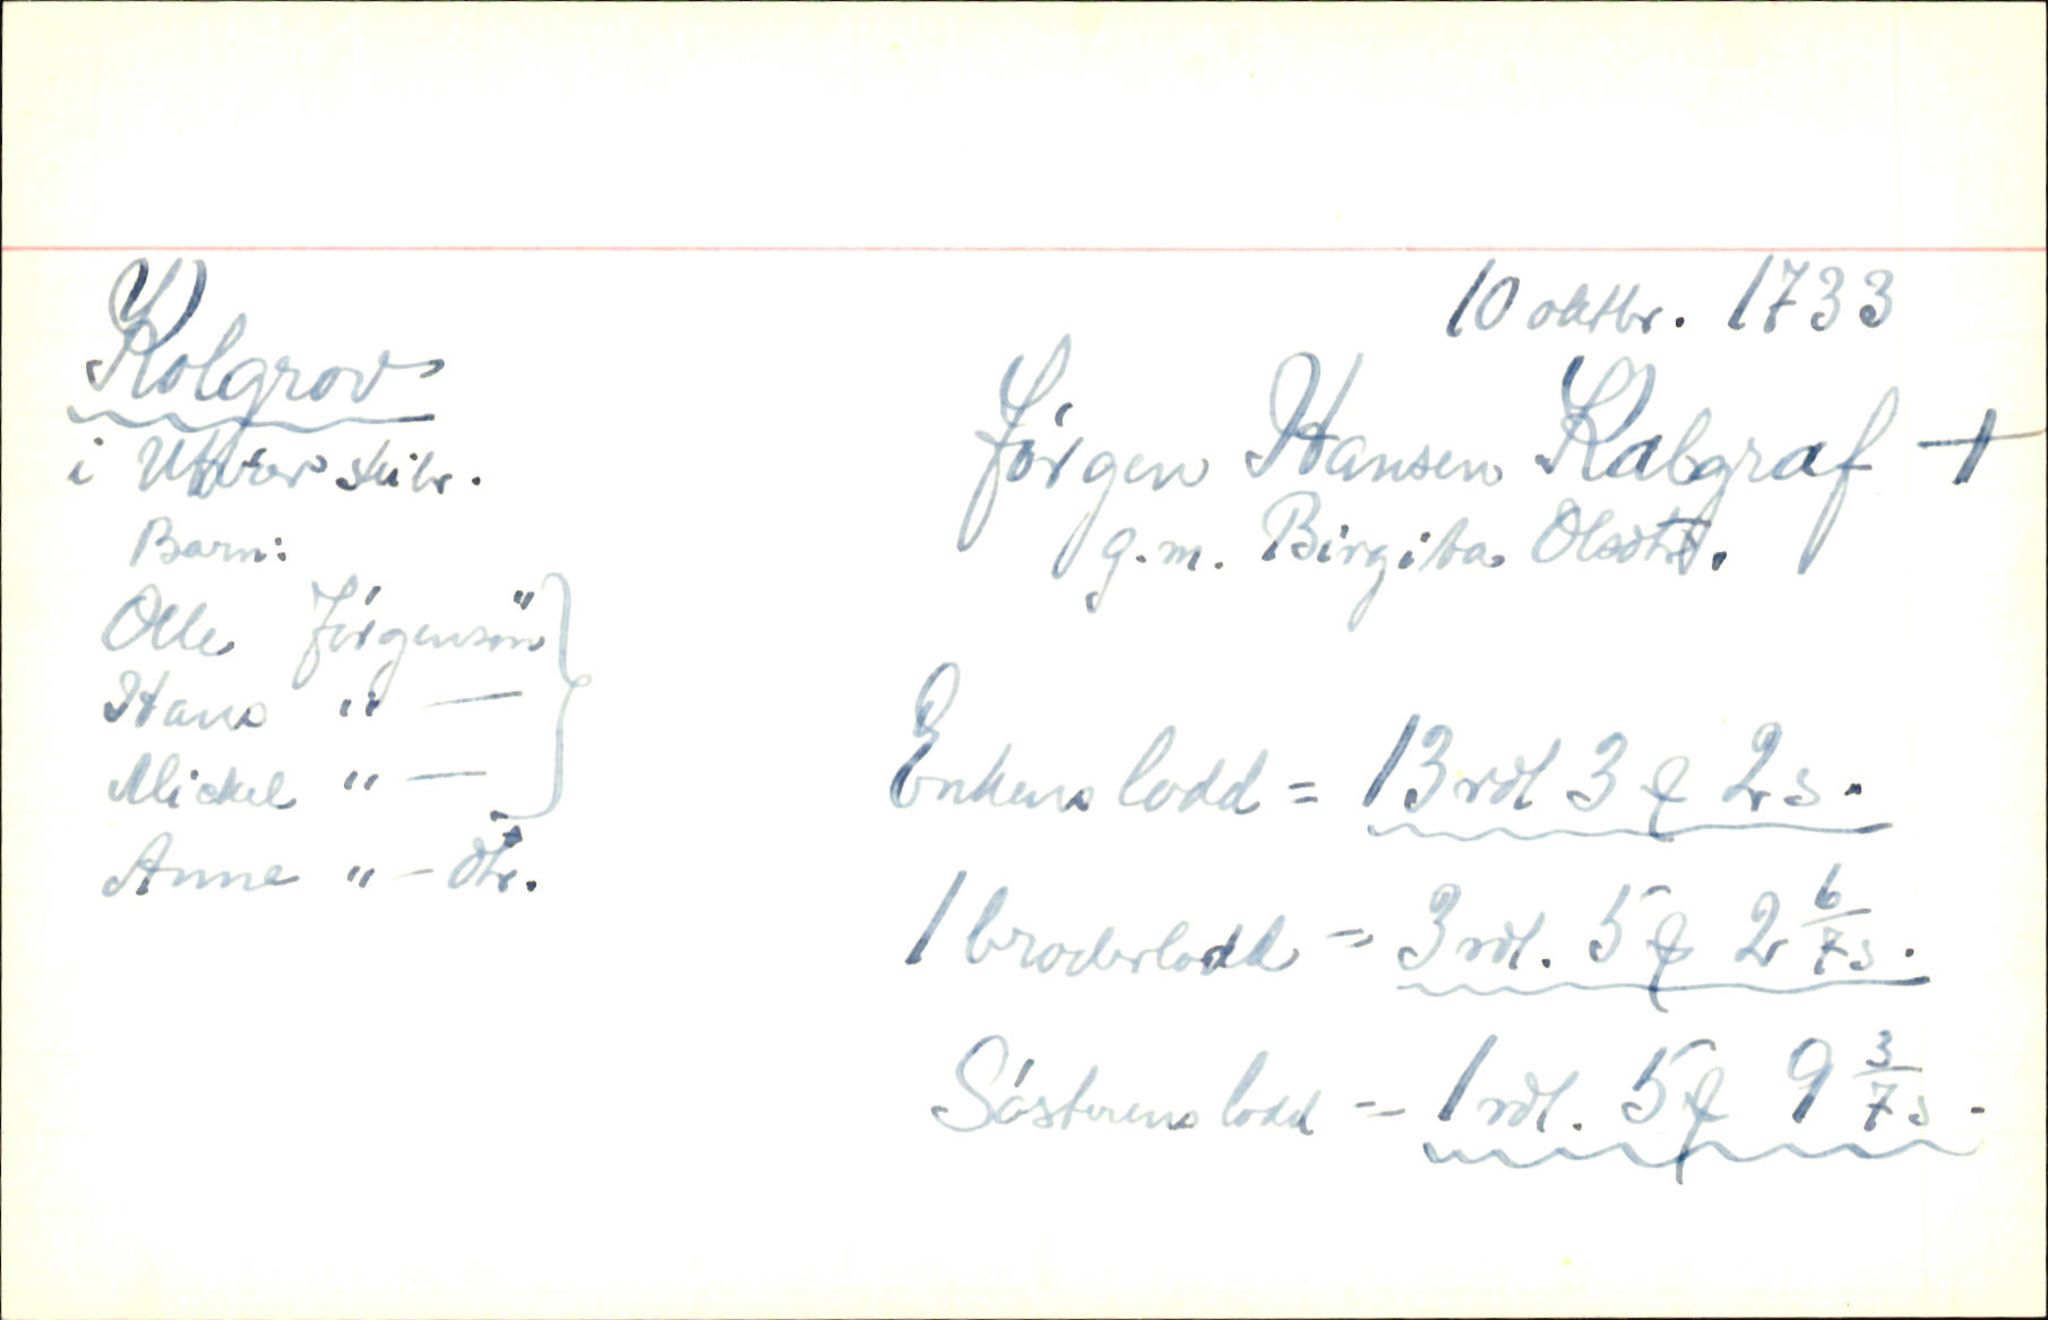 10 oktbr. 1733
Kolgrov
i Utvær skibr.
Barn:
Olle Jörgensön
Hans " —
Mickel " —
Anne " — dtr.
Jörgen Hansen Kalgraf +
g.m. Birgita Olsdtr.
Enkens lodd = 13 rdl 3 ƒ 2 s.
1 broderlodd = 3 rdl. 5 ƒ 2 6/7 s.
Sösterens lodd = 1 rdl. 5 ƒ 9 3/7 s.